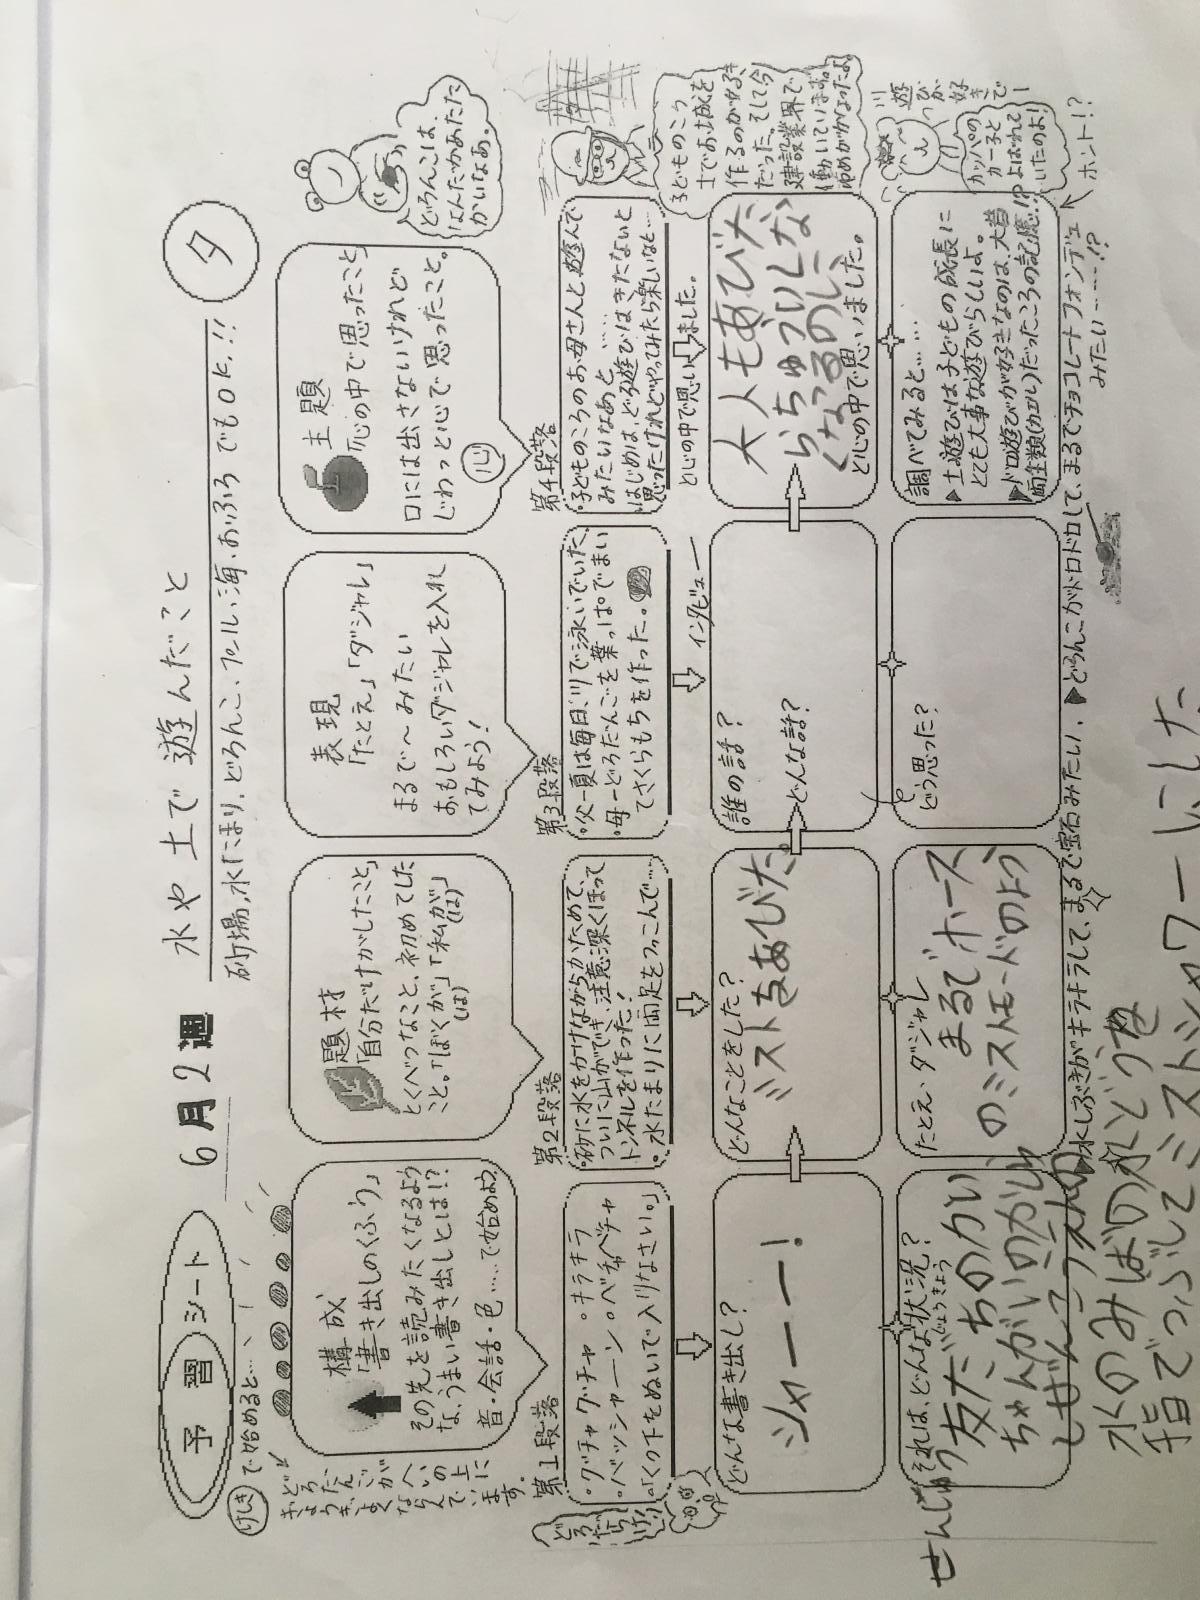 予習シート
6月2週
水や土で遊んだこと
夕
砂場、水たまり、どろんこ、プール、海、おふろでもOK!!
けしきで始めると…
構成
「書き出しのくふう」
その先を読みたくなるよう
な、うまい書き出しとは!?
音・会話・色……で始めよう
題材
「自分だけがしたこと」
とくべつなこと、初めてした
こと。「ぼくが」「私が」
(は)(は)
表現
「たとえ」「ダジャレ」
まるで〜みたい
おもしろいダジャレを入れ
てみよう!
主題
「心の中で思ったこと」
口には出さないけれど
じわっと心で思ったこと。
心
どろんこは、
なんだかあたた
かいなあ。
第1段落
・グチャグチャ ・キラキラ
・バッシャーン ・ベチャベチャ
・「くつ下をぬいで入りなさい。」
第2段落
・砂に水をかけながらかためて、
ついに山ができ、注意深くほって
トンネルを作った!
・水たまりに両足をつっこんで……
第3段落
・父―夏は毎日、川で泳いでいた。
・母―どろだんごを葉っぱでまい
てさくらもちを作った。
インタビュー
第4段落
・子どものころのお母さんと遊んで
みたいなあと……
・はじめは、どろ遊びはきたないと
思ったけれどやってみたら楽しいなと…
と心の中で思いました。
子どものころ
土でお城を
作るのが好き
だった。そして今
建設業界で
働いています。
どんな書き出し?
シャーー!
どんなことをした?
ミストをあびた。
誰の話?
どんな話?
大人もあびた
らちゅういしな
くなるのに、
と心の中で思いました。
川遊びが好きで
カッパの
カー子と
よばれて
いたのよ!
ホント!?
それは、どんな状況?
じょうきょう
友だちのかい
ちゃんがいのかしゅ
しぜんこうえんの
水のみばの水どうを
指でつぶしてミストシャワーにした
たとえ、ダジャレ
まるでホース
のミストモードのよう
どう思った?
調べてみると……
▶土遊びは子どもの成長に
とても大事な遊びらしいよ。
▶ドロ遊びが好きなのは、大昔
両生類(カエル)だったころの記憶…!?
▶水しぶきがキラキラして、まるで宝石みたい! ▶どろんこがドロドロして、まるでチョコレートフォンデュ
みたい……!?